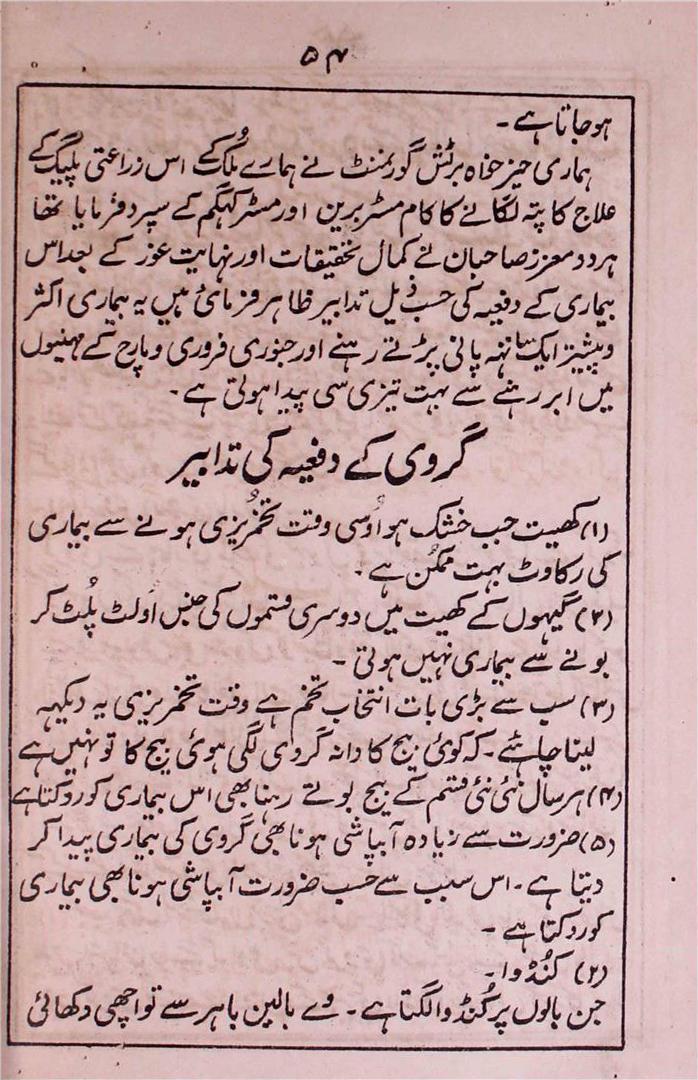 ۵۴
ہوجاتا ہے۔
ہماری خیر خواہ برٹش گورنمنٹ نے ہمارے ملک کے اس زراعتی پلیگ کے
علاج کا پتہ لگانے کا کام مسٹر برین اور مسٹر کہنگم کے سپرد فرمایا تھا
ہر دو معزز صاحبان نے کمال تحقیقات اور نہایت غور کے بعد اس
بیماری کے دفعیہ کی حسب ذیل تدابیر ظاہر فرمائی ہیں یہ بیماری اکثر
و بیشتر ایک سا تہہ پانی پڑتے رہنے اور جنوری فروری و مارچ کے مہنیوں
میں ابر رہنے سے بہت تیزی سی پیدا ہوتی ہے۔
گروی کے دفعیہ کی تدابیر
(۱) کھیت جب خشک ہو اُوسی وقت تخمریزی ہونے سے بیماری
کی رکاوٹ بہت ممکن ہے۔
(۲) گیہوں کے کھیت میں دوسری قسموں کی جنس اَولٹ پُلٹ کر
بونے سے بیماری نہیں ہوتی۔
(۳) سب سے بڑی بات انتخاب تخم ہے وقت تخمریزی یہ دیکہہ
لینا چاہئے۔ کہ کوئی بیج کا دانہ گروی لگی ہوئی بیج کا تو نہیں ہے
(۴) ہر سال نئی نئی قسم کے بیج بوتے رہنا بھی اس بیماری کو روکتا ہے
(۵) ضرورت سے زیادہ آبپاشی ہونا بھی گروی کی بیماری پیدا کر
دیتا ہے۔ اس سبب سے حسب ضرورت آبپاشی ہونا بھی بیماری
کو روکتا ہے۔
(۲) کنُڈوا۔
جن بالوں پر کُنڈوا لگتا ہے۔ وے بالین باہر سے تو اچھی دکھائی